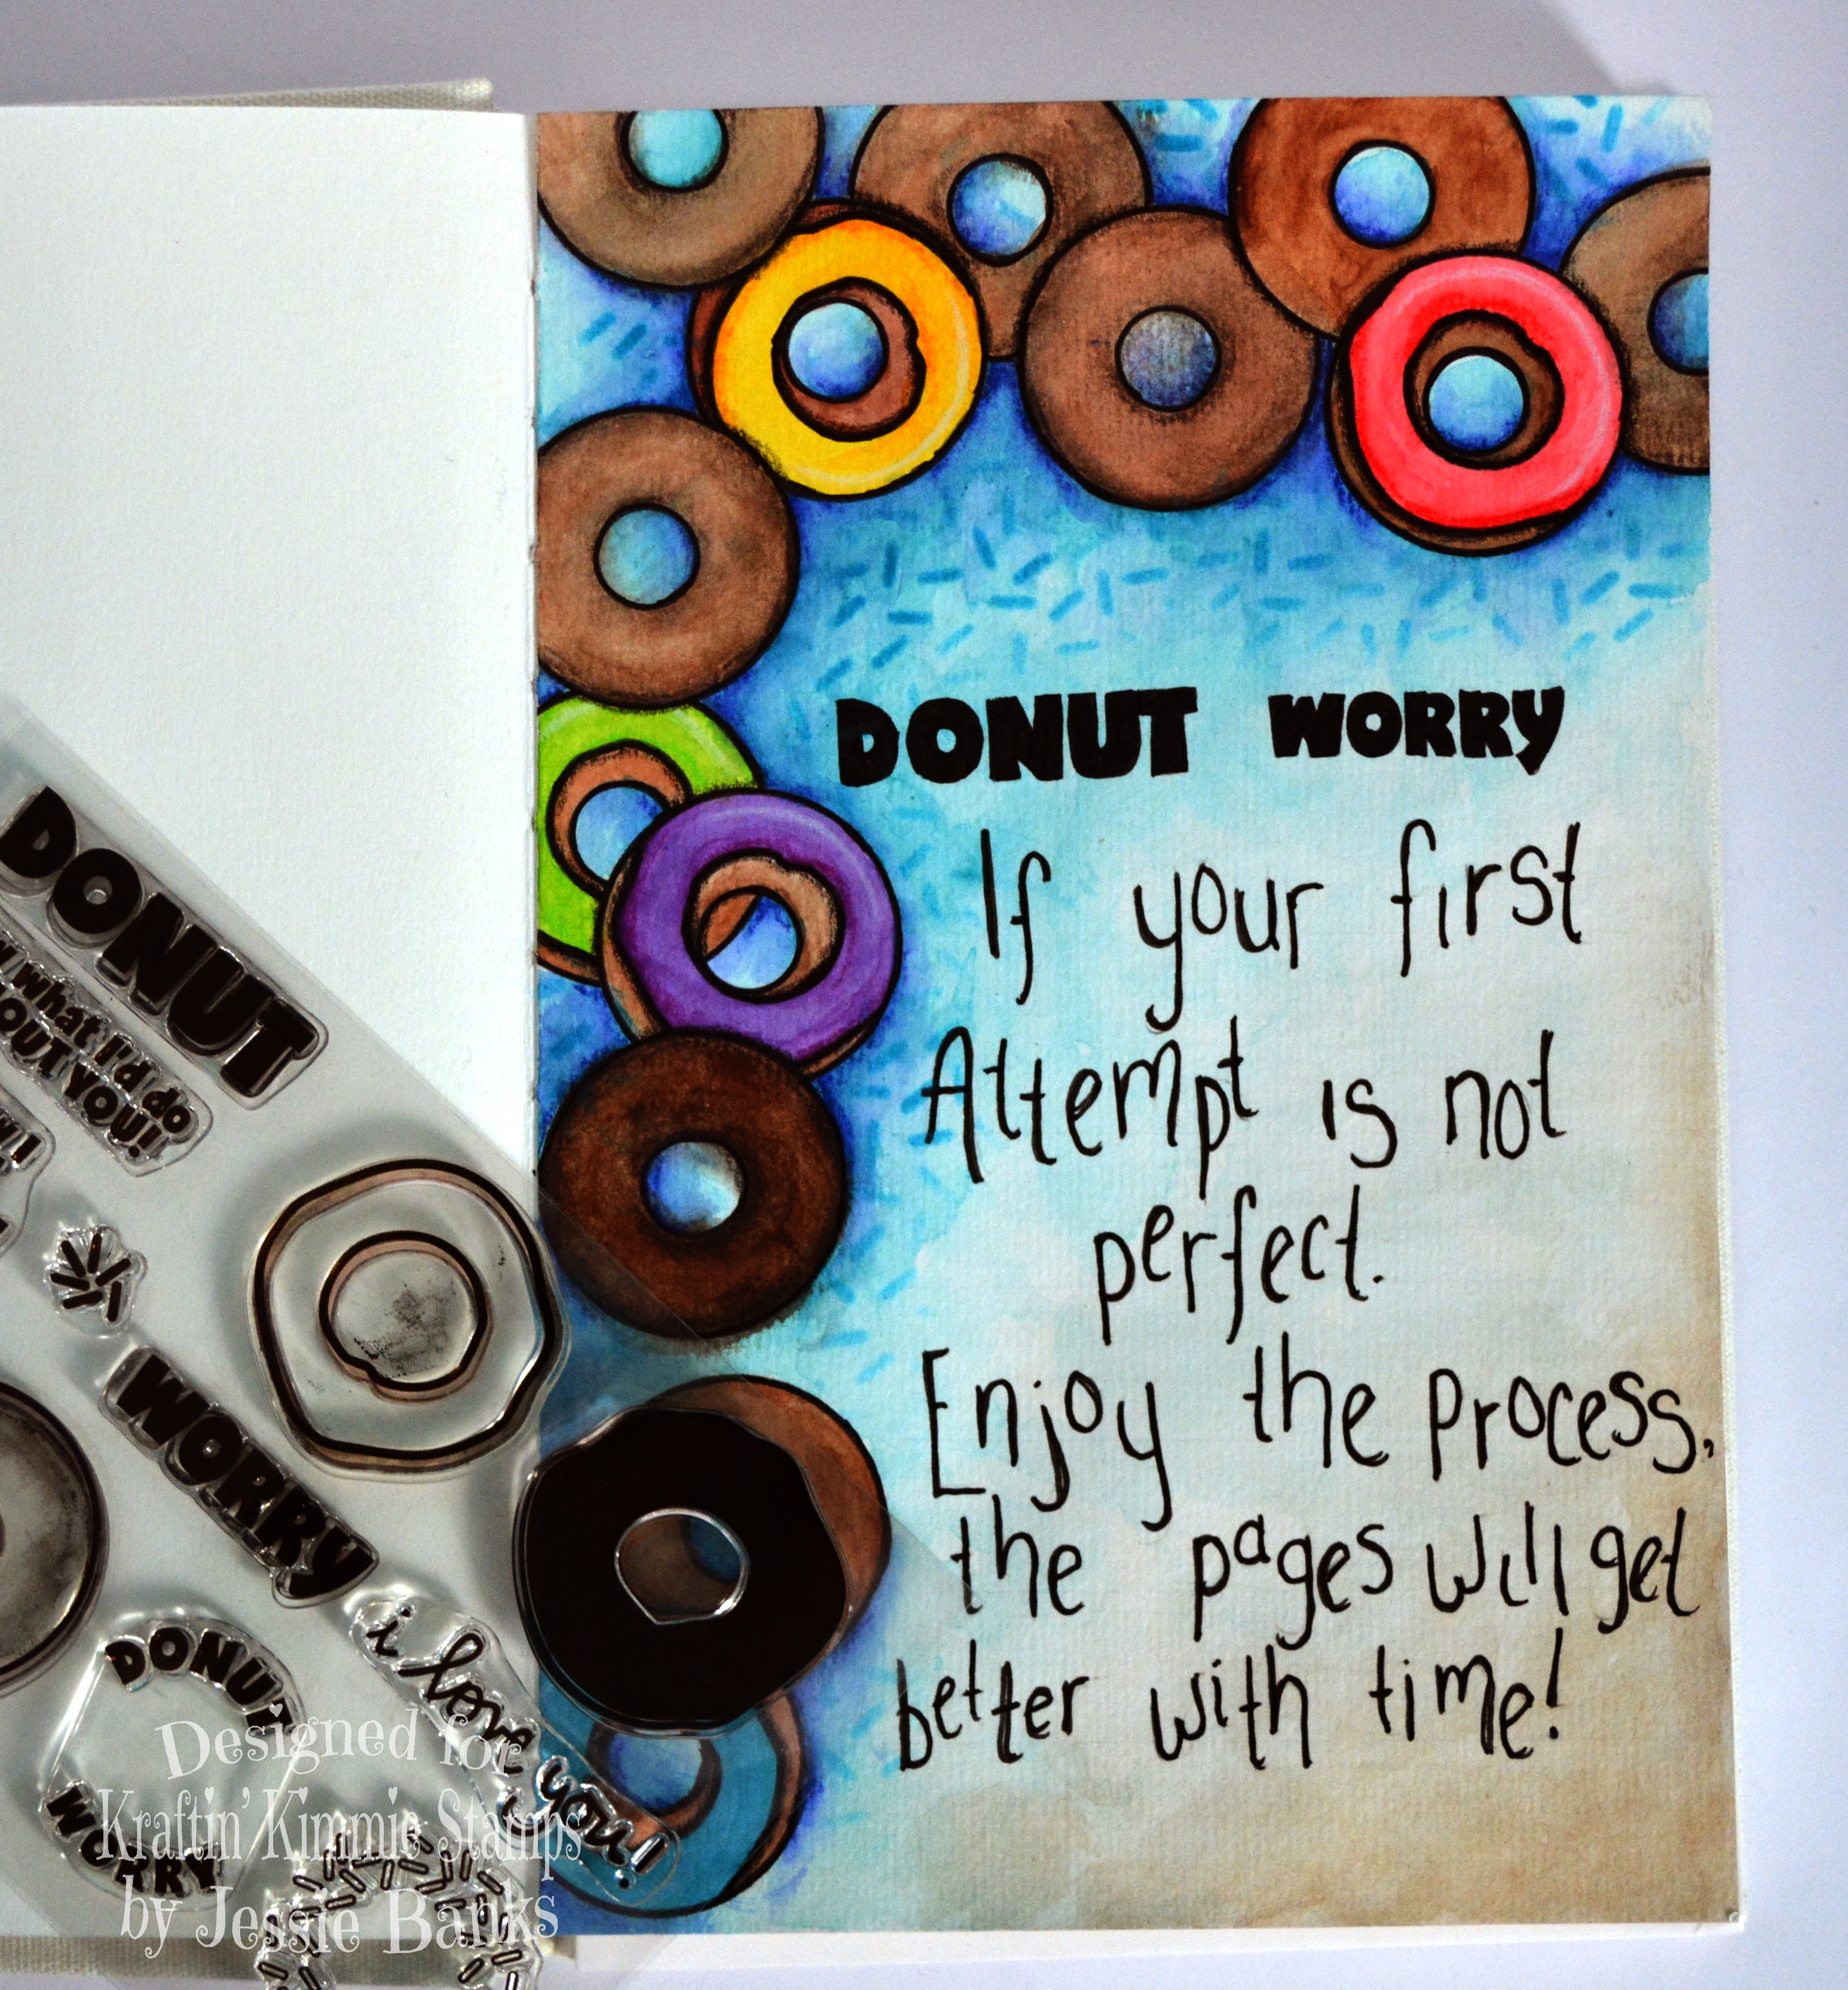 DONUT WORRY
If your first
Attempt is not
perfect.
Enjoy the process,
the pages will get
better with time!
DONUT
what I'd do
OUT YOU!
WORRY
i love you!
DONUT
WORRY
Designed for
Kraftin' Kimmie Stamps
by Jessie Banks